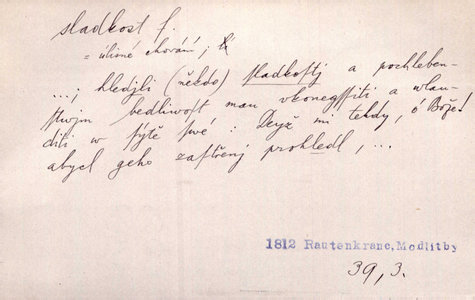 sladkost f.
= úlisné chování;
...; hledjli (někdo) sladkostj a pochleben-
stwjm bedliwost mau vkonegssiti a wlau-
diti w sýtě swé: Degž mi tehdy, ó Bože!
abych geho zastřený prohledl, ...
1812 Rautenkranc, Modlitby
39, 3.